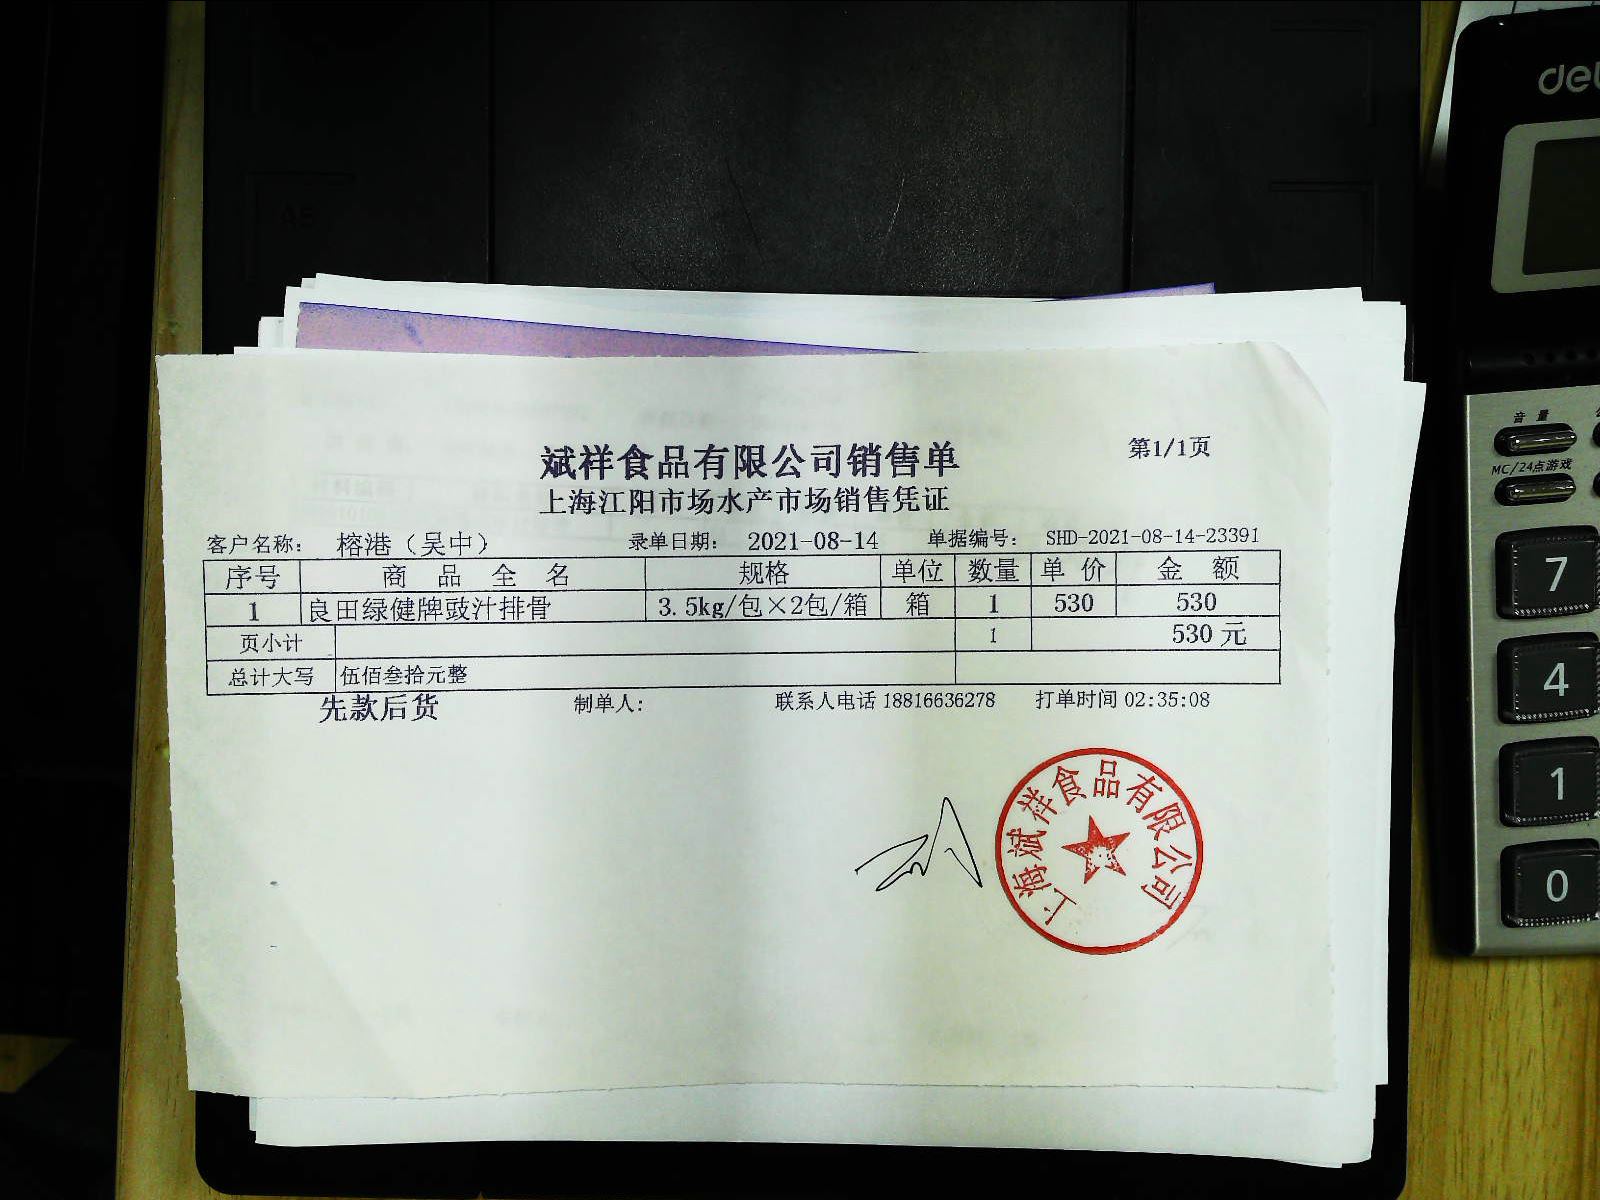 斌祥食品有限公司销售单
第1/1页
上海江阳市场水产市场销售凭证
客户名称： 榕港（吴中） 录单日期： 2021-08-14 单据编号： SHD-2021-08-14-23391
序号 商品全名 规格 单位 数量 单价 金额
1 良田绿健牌豉汁排骨 3.5kg/包×2包/箱 箱 1 530 530
页小计 1 530元
总计大写 伍佰叁拾元整
先款后货 制单人： 联系人电话 18816636278 打单时间 02:35:08
上海斌祥食品有限公司
A5
音量
MC/24点游戏
7
4
1
0